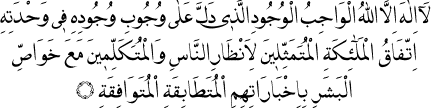 لَٓا اِلٰهَ اِلَّا اللّٰهُ الْوَاجِبُ الْوُجُودِ الَّذِى دَلَّ عَلٰى وُجُوبِ وُجُودِهِ فِى وَحْدَتِهِ
اِتِّفَاقُ الْمَلٰٓئِكَةِ الْمُتَمَثِّلِينَ لِاَنْظَارِ النَّاسِ وَالْمُتَكَلِّمِينَ مَعَ خَوَاصِّ
الْبَشَرِ بِاِخْبَارَاتِهِمُ الْمُتَطَابِقَةِ الْمُتَوَافِقَةِ ۞